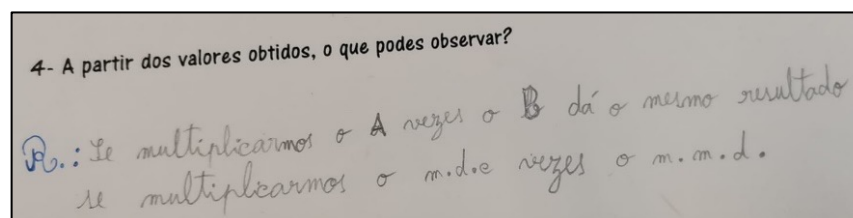 4- A partir dos valores obtidos, o que podes observar?
R.: Se multiplicarmos o A vezes o B dá o mesmo resultado
se multiplicarmos o m.d.c vezes o m.m.d.